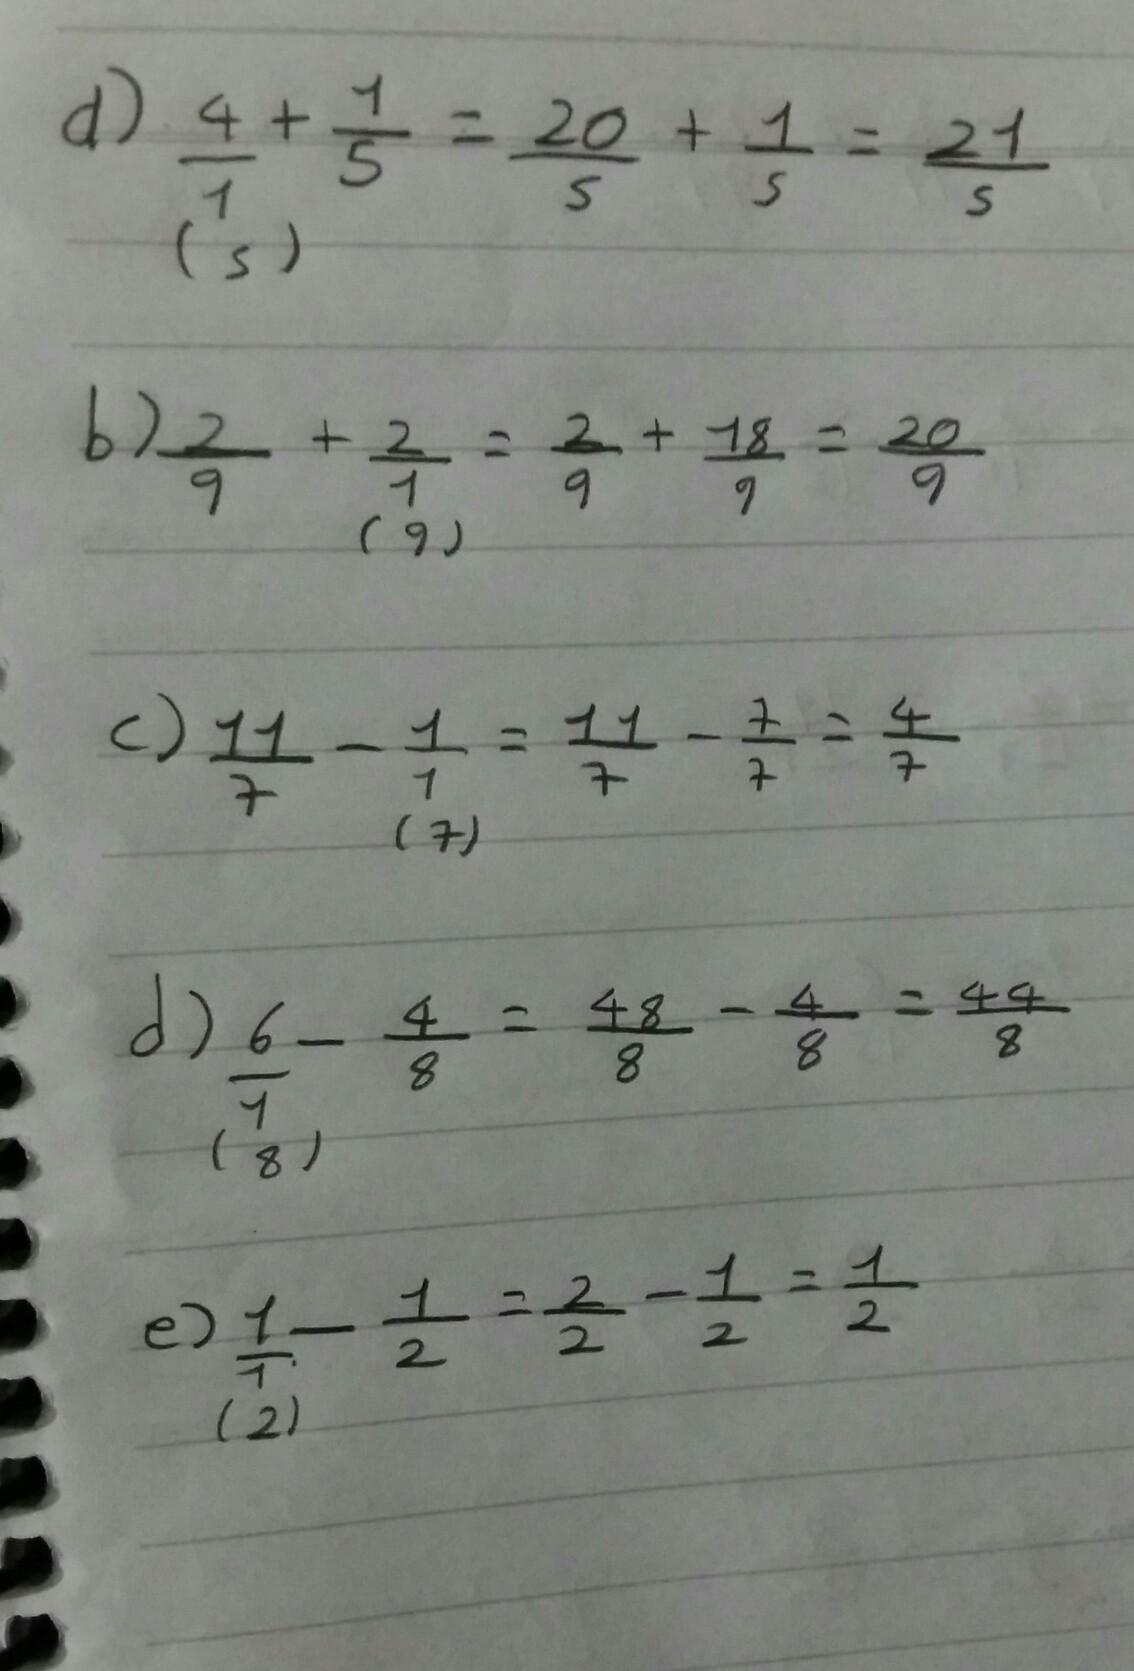 d) 4/1 + 1/5 = 20/5 + 1/5 = 21/5
(5)
b) 2/9 + 2/1 = 2/9 + 18/9 = 20/9
(9)
c) 11/7 - 1/1 = 11/7 - 7/7 = 4/7
(7)
d) 6/1 - 4/8 = 48/8 - 4/8 = 44/8
(8)
e) 1/1 - 1/2 = 2/2 - 1/2 = 1/2
(2)